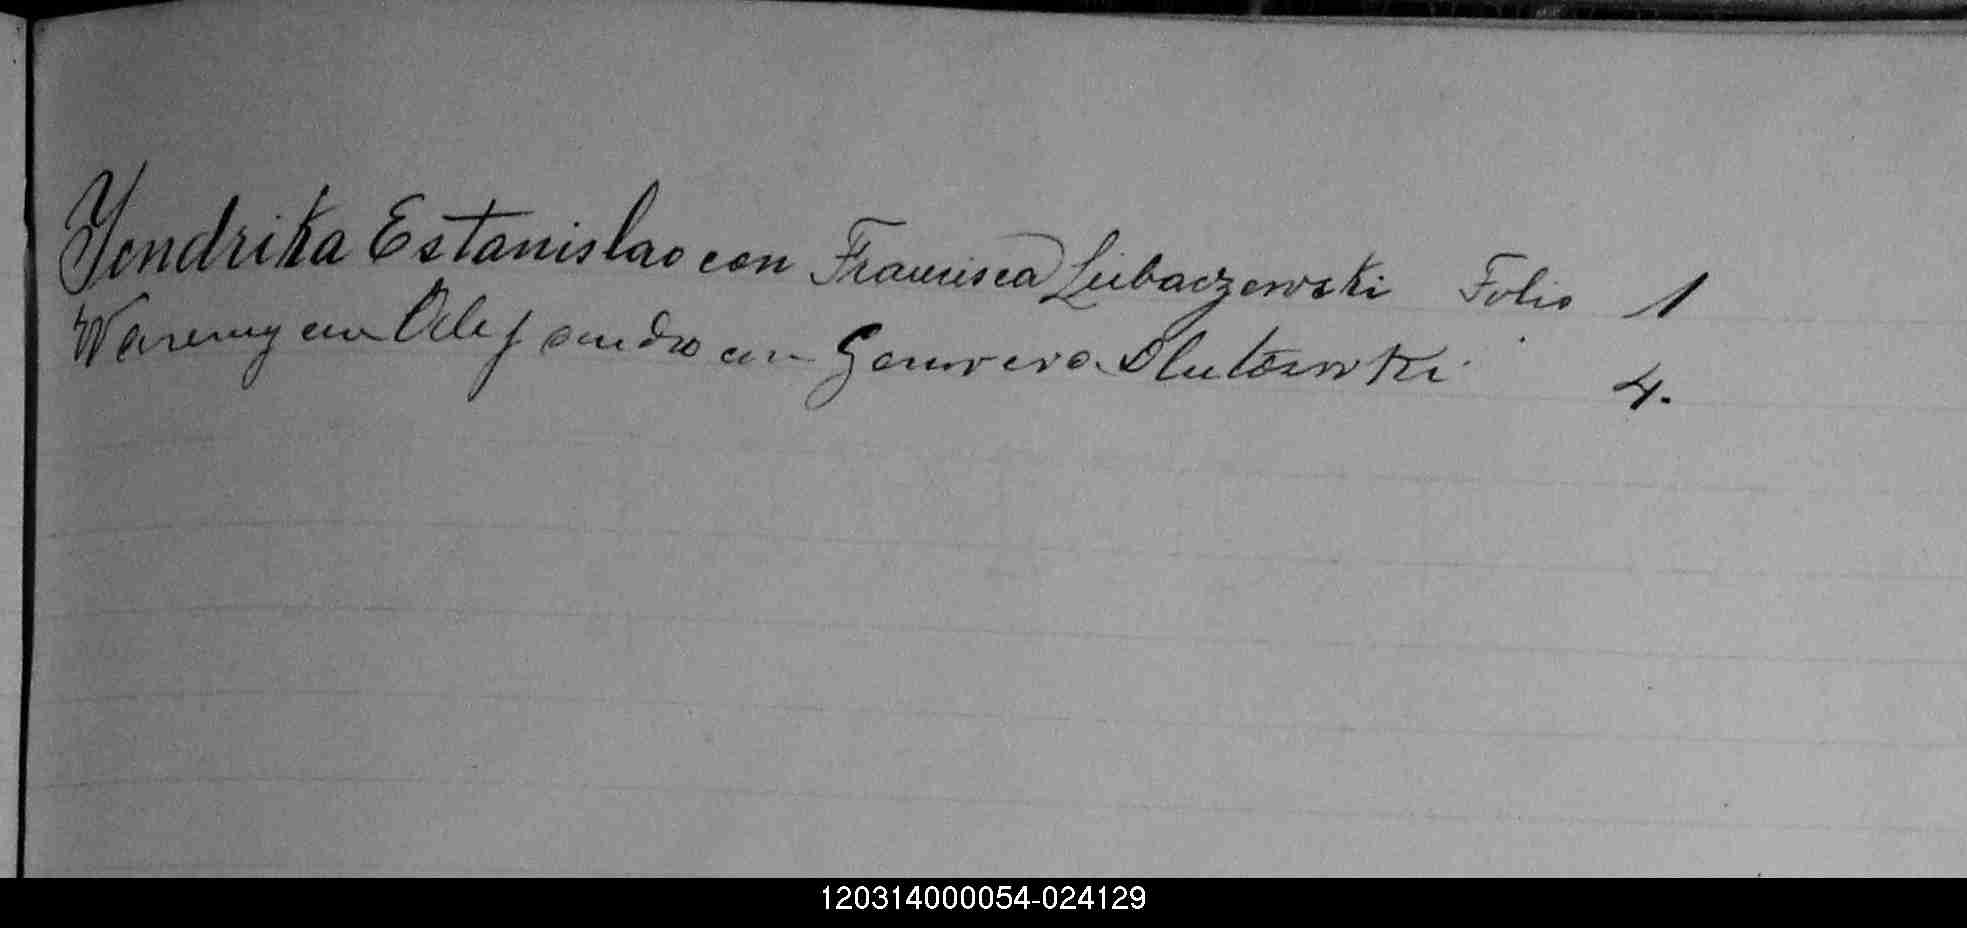 Yendrika Estanislao con Francisca Lubaczewski Folio 1
Alejandro con Genoveva 4.
120314000054-024129